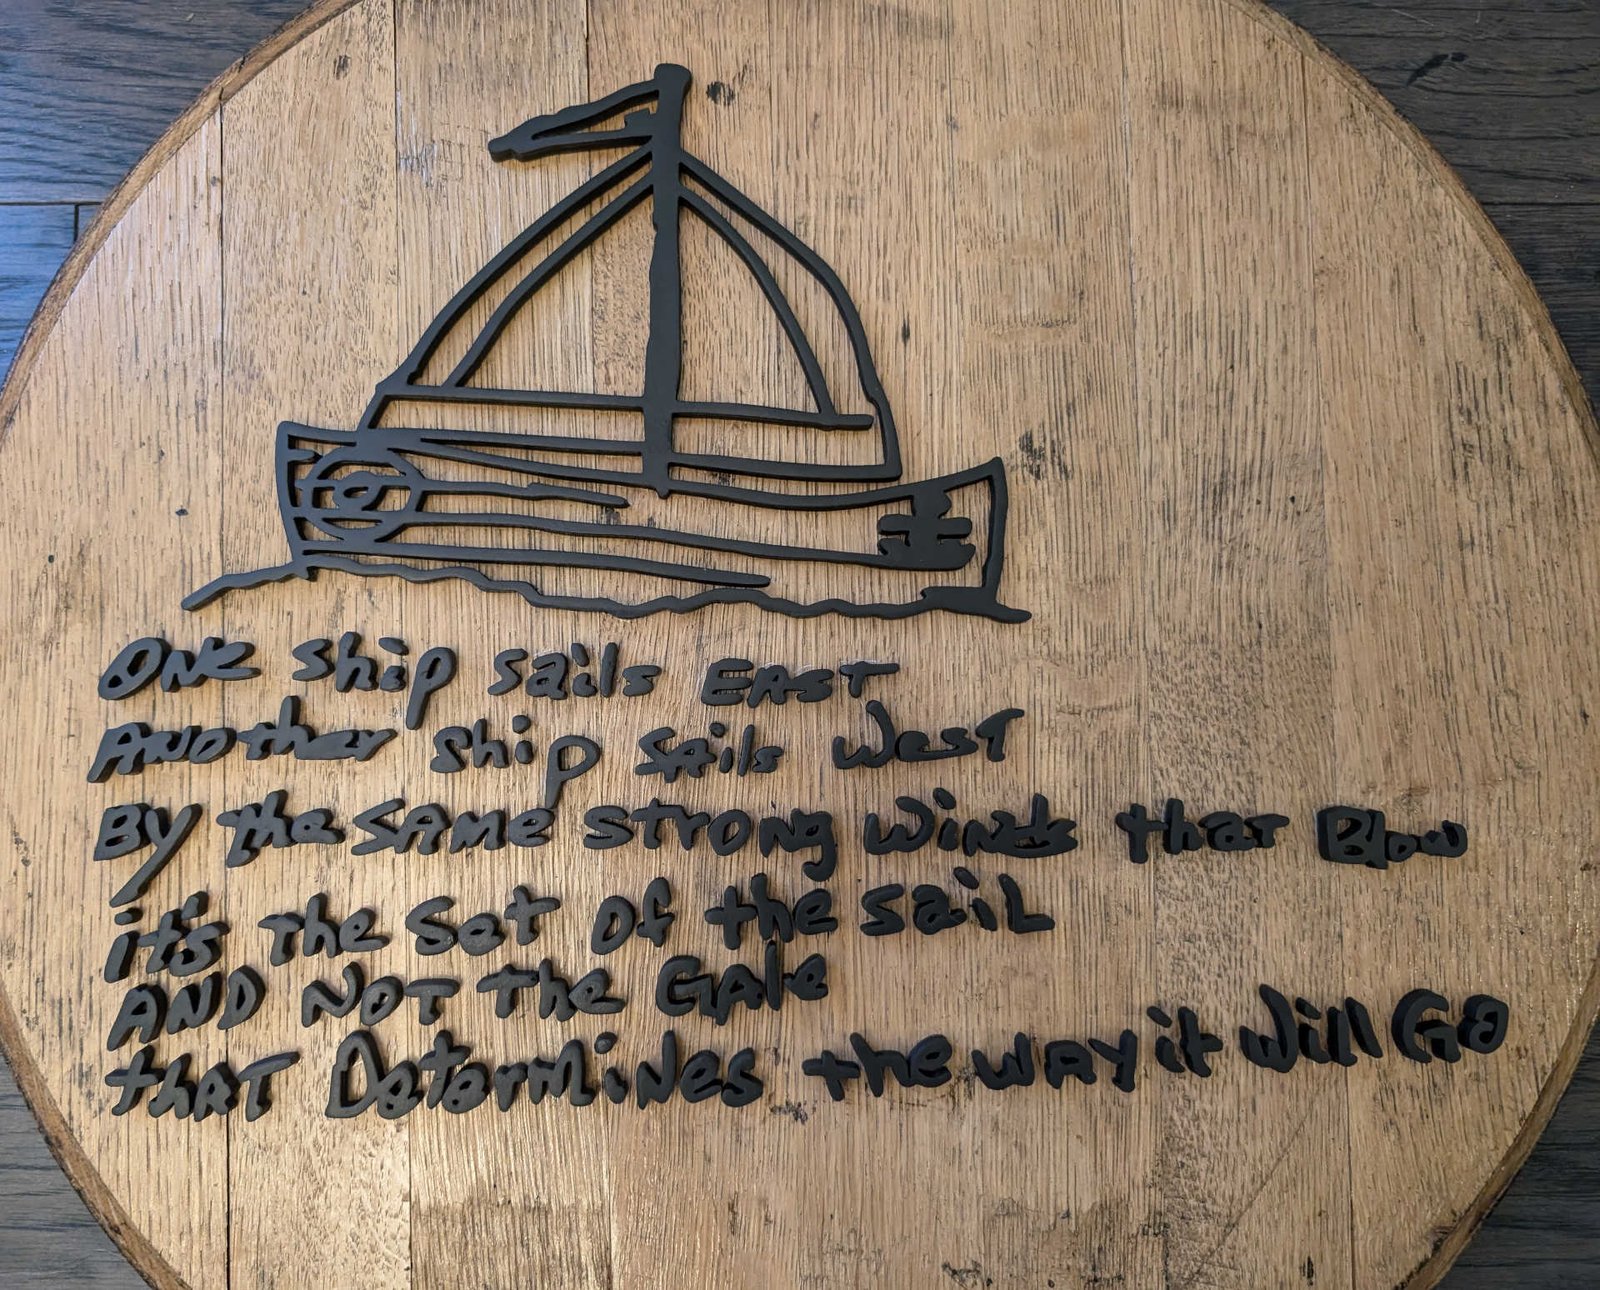 ONE ship sails EAST
ANOther ship sails West
By the SAME strong winds that Blow
it's the set Of the saiL
AND NOT the GAle
thAT DetermiNes the WAY it Will GO